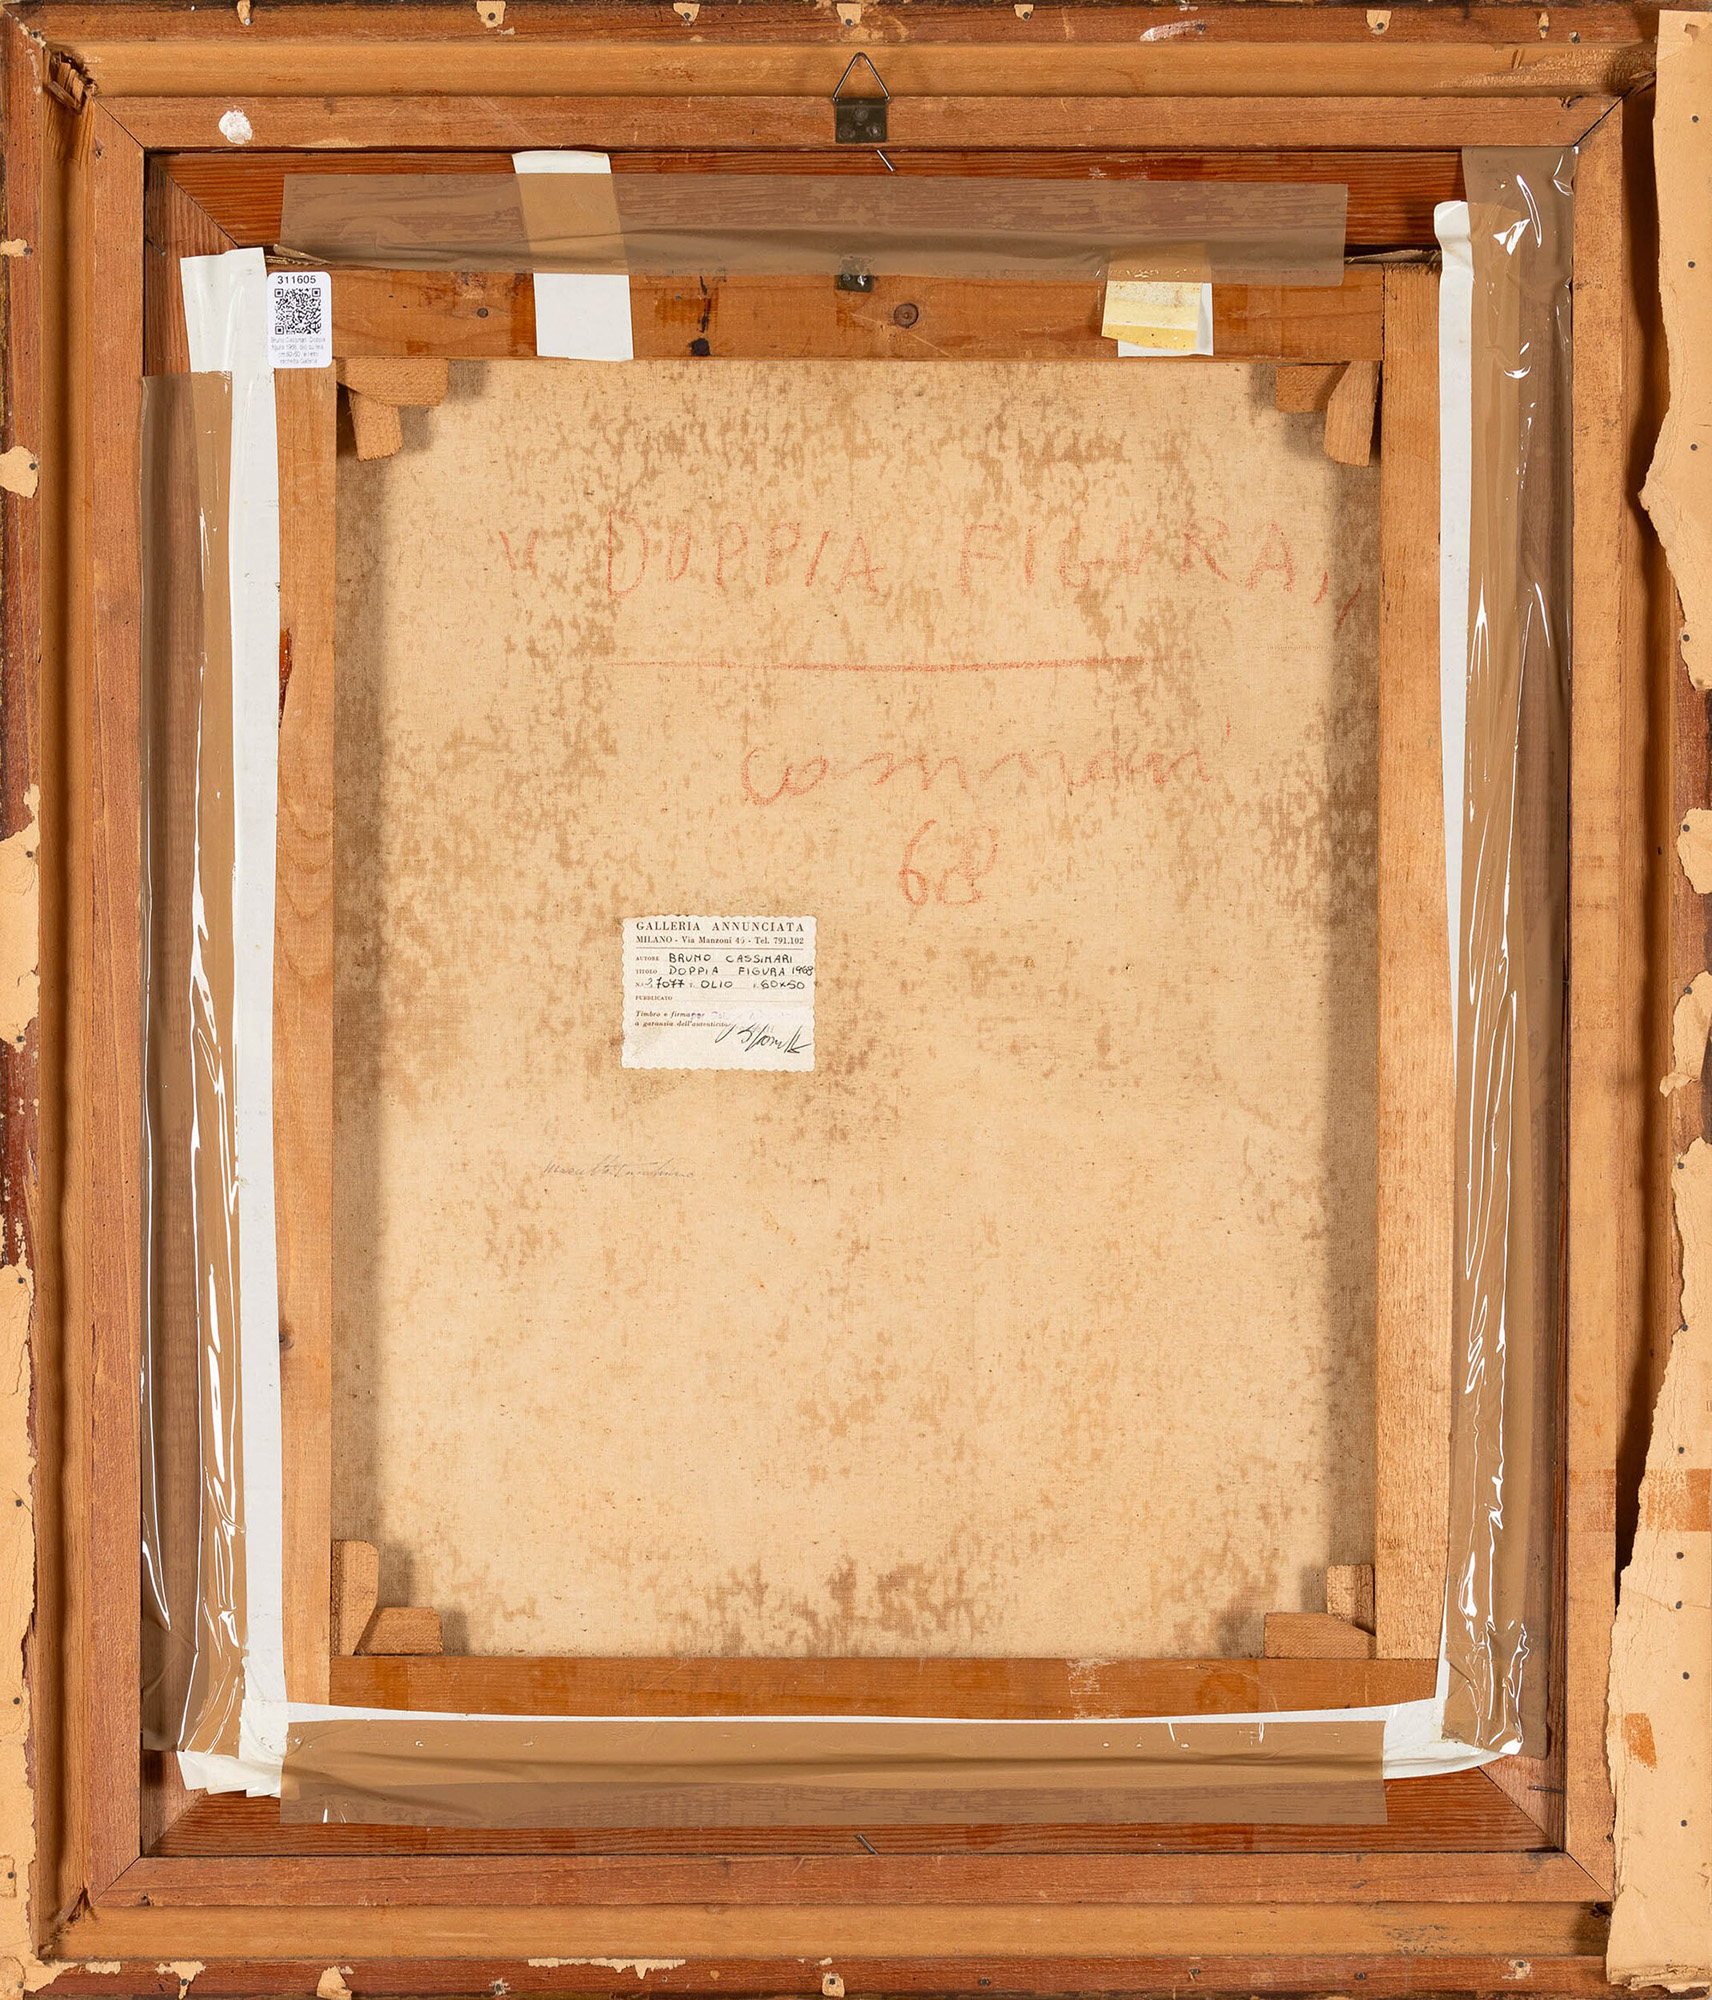 311605
Bruno Cassinari Doppia
figura 1968
"DOPPIA FIGURA,,
Cassinari
68
GALLERIA ANNUNCIATA
MILANO - Via Manzoni 45 - Tel. 791.102
AUTORE BRUNO CASSINARI
TITOLO DOPPIA FIGURA 1968
N. 37077 T. OLIO F. 60x50
PUBBLICATO
Timbro e firma per
a garanzia dell'autenticità